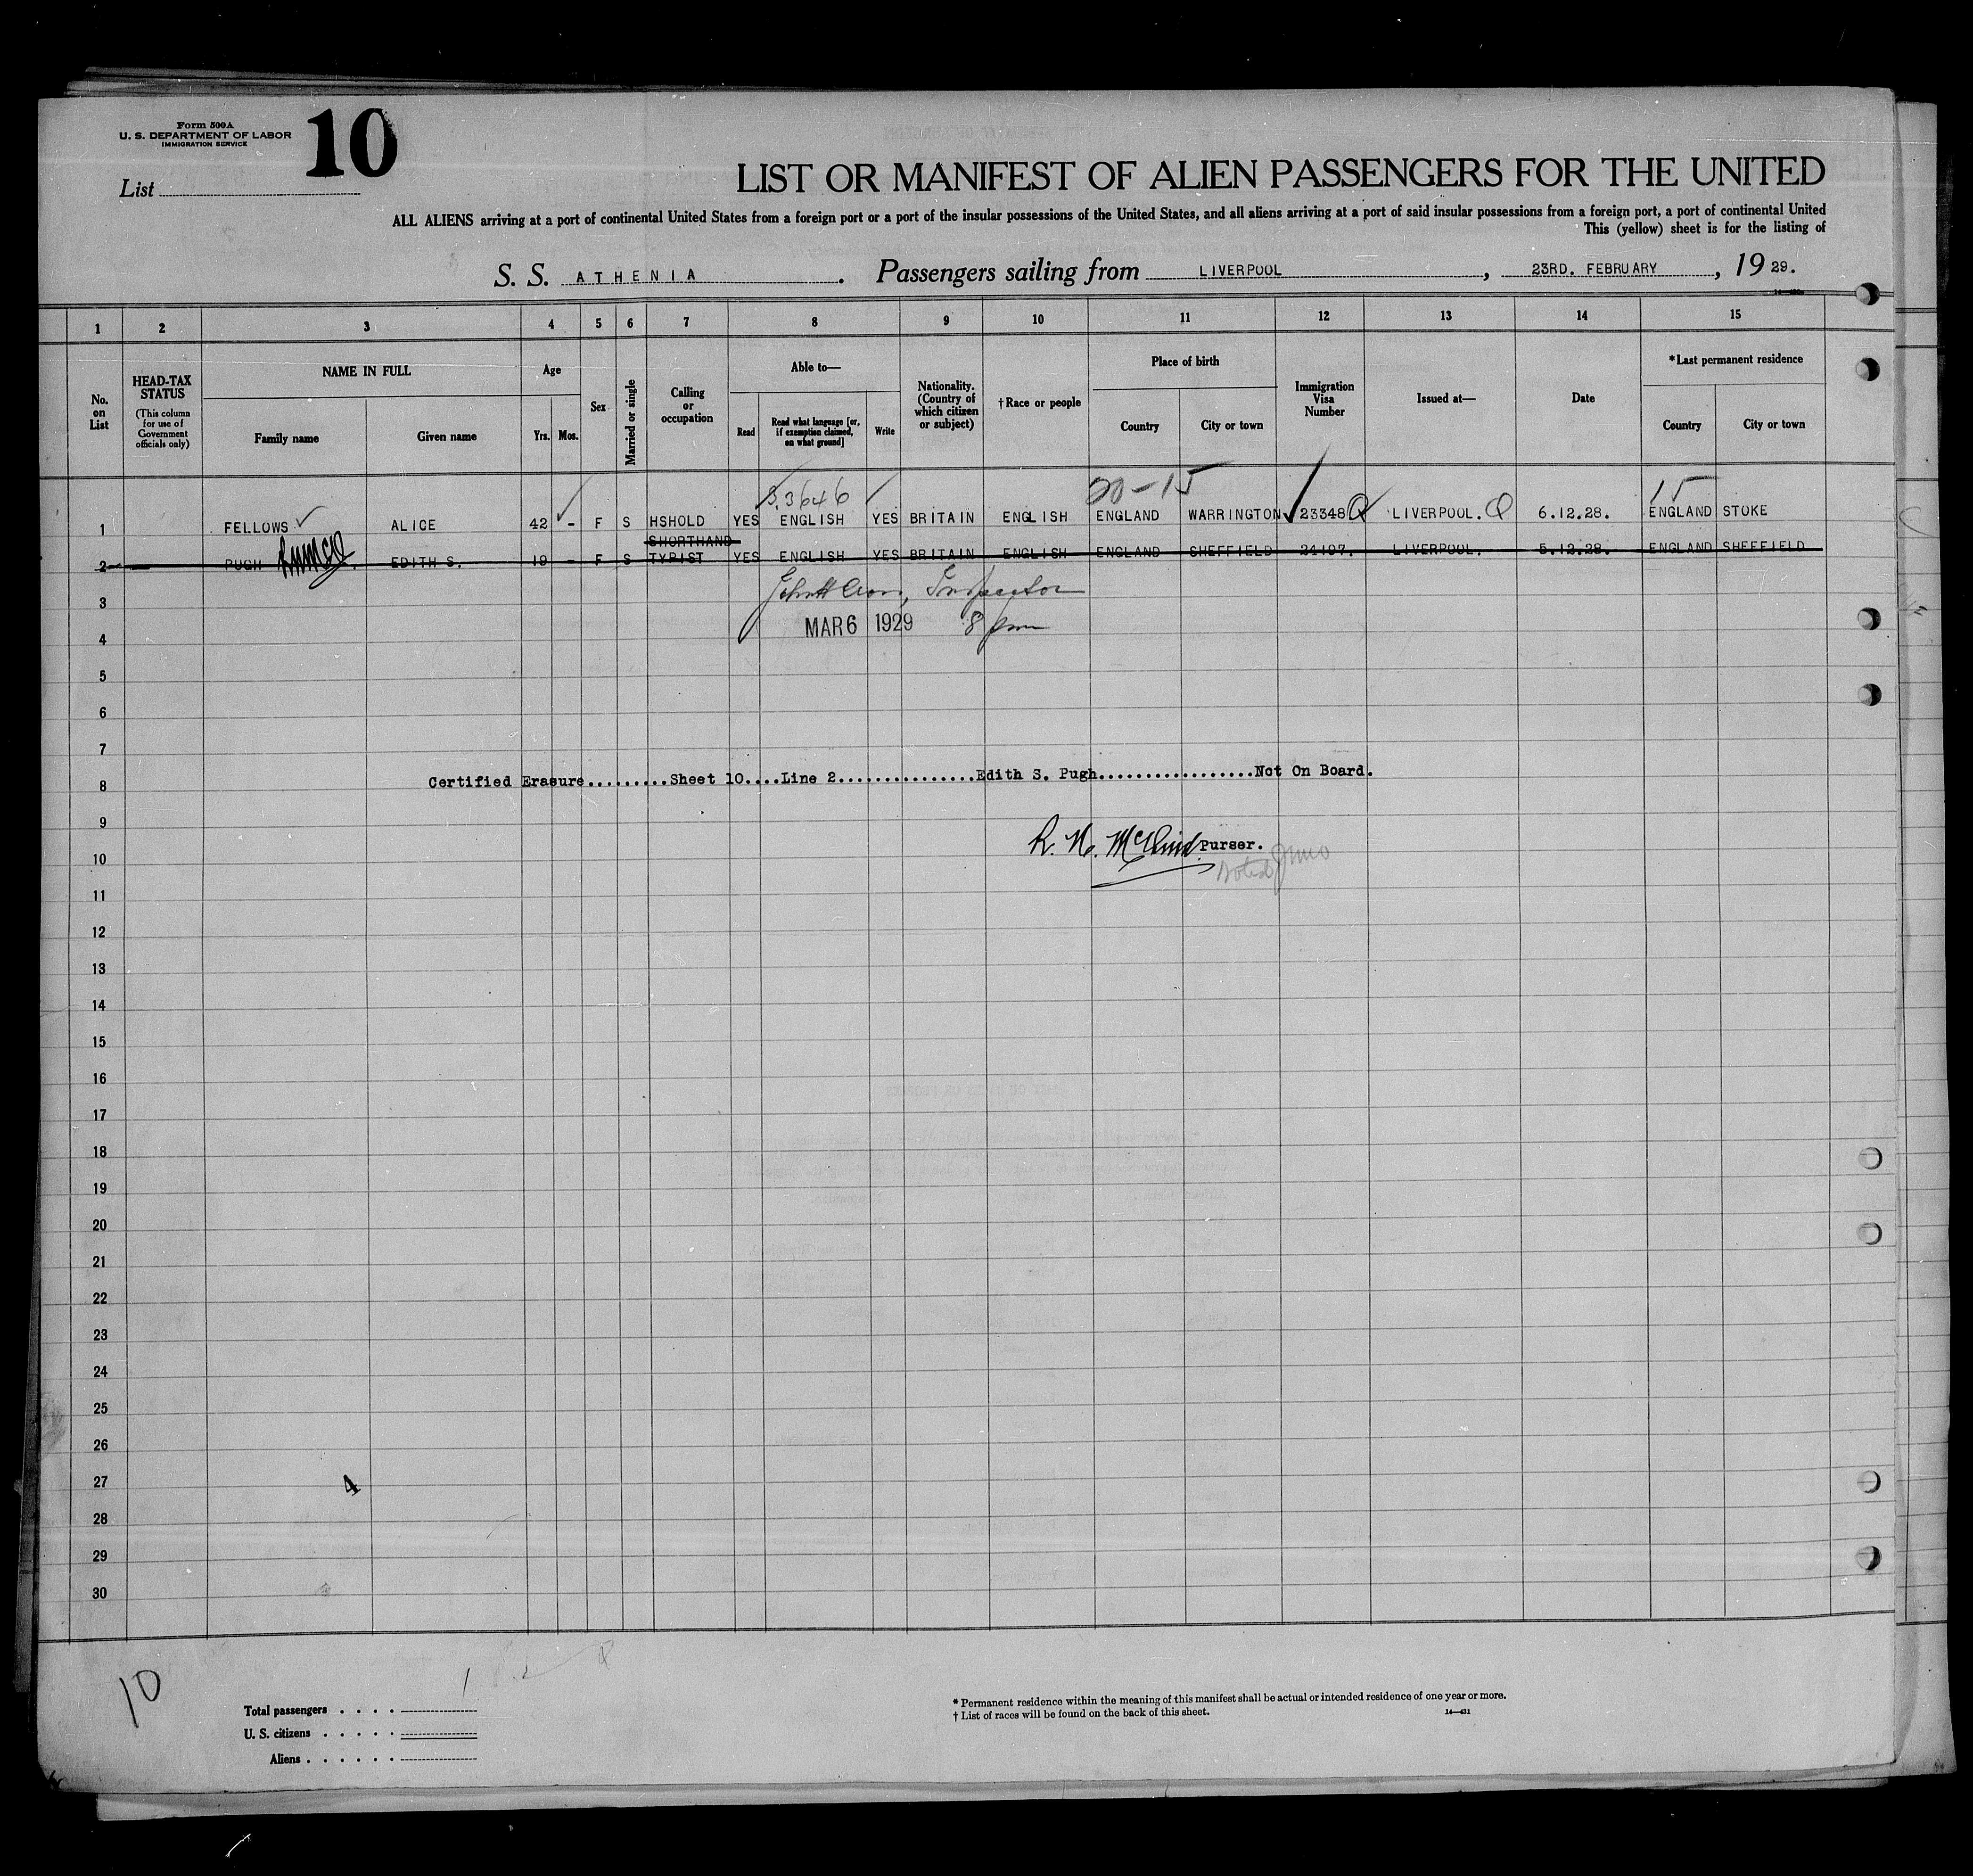 Form 500A
U. S. DEPARTMENT OF LABOR
IMMIGRATION SERVICE
10
List
LIST OR MANIFEST OF ALIEN PASSENGERS FOR THE UNITED
ALL ALIENS arriving at a port of continental United States from a foreign port or a port of the insular possessions of the United States, and all aliens arriving at a port of said insular possessions from a foreign port, a port of continental United
This (yellow) sheet is for the listing of
S. S. ATHENIA. Passengers sailing from LIVERPOOL, 23RD. FEBRUARY, 19 29.
1 2 3 4 5 6 7 8 9 10 11 12 13 14 15
No. on List
HEAD-TAX STATUS
(This column for use of Government officials only)
NAME IN FULL
Family name
Given name
Age
Yrs. Mos.
Sex
Married or single
Calling or occupation
Able to—
Read
Read what language [or, if exemption claimed, on what ground]
Write
Nationality. (Country of which citizen or subject)
†Race or people
Place of birth
Country
City or town
Immigration Visa Number
Issued at—
Date
*Last permanent residence
Country
City or town
3646 20-15 15
1 FELLOWS ALICE 42 - F S HSHOLD YES ENGLISH YES BRITAIN ENGLISH ENGLAND WARRINGTON 23348 Q LIVERPOOL. Q 6.12.28. ENGLAND STOKE
SHORTHAND
2 PUGH EDITH S. 19 - F S TYPIST YES ENGLISH YES BRITAIN ENGLISH ENGLAND SHEFFIELD 24107. LIVERPOOL. 5.12.28. ENGLAND SHEFFIELD
3 Inspector
4 MAR 6 1929 8 pm
5
6
7
8 Certified Erasure.........Sheet 10....Line 2...............Edith S. Pugh.................Not On Board.
9
10 Purser.
Noted
11
12
13
14
15
16
17
18
19
20
21
22
23
24
25
26
27 4
28
29
30
10
1
Total passengers . . . .
U. S. citizens . . . . .
Aliens . . . . . .
* Permanent residence within the meaning of this manifest shall be actual or intended residence of one year or more.
† List of races will be found on the back of this sheet.
14—431